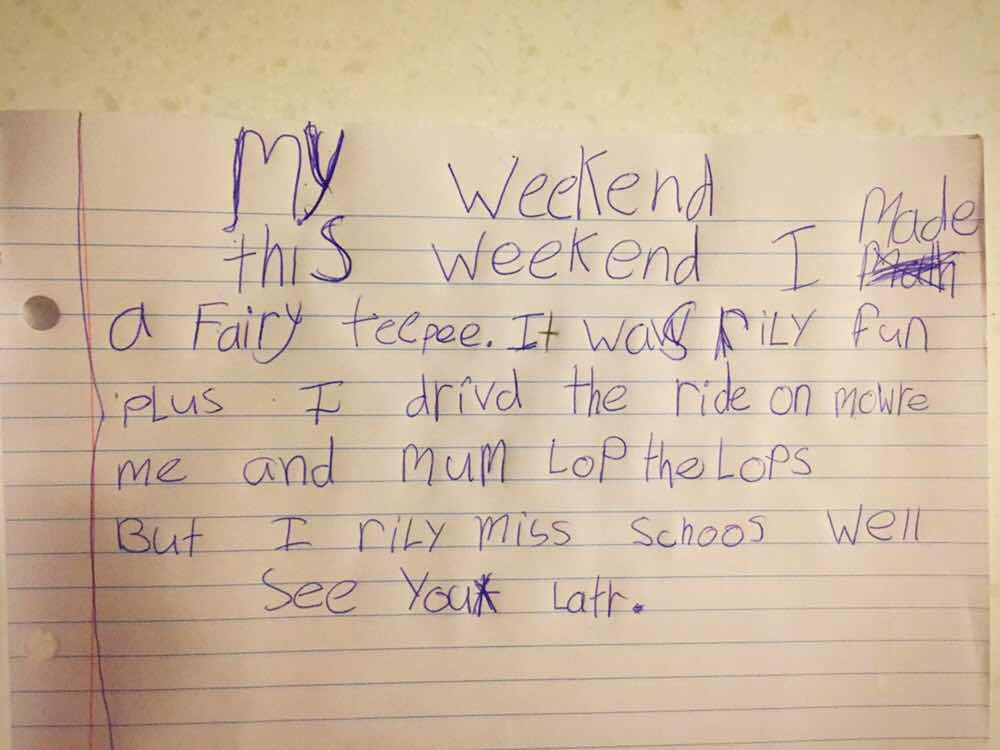 My Weekend
this weekend I Made
a Fairy teepee. It was rily fun
plus I drivd the ride on mowre
me and mum Lop the Lops
But I rily miss schoos well
See You Latr.